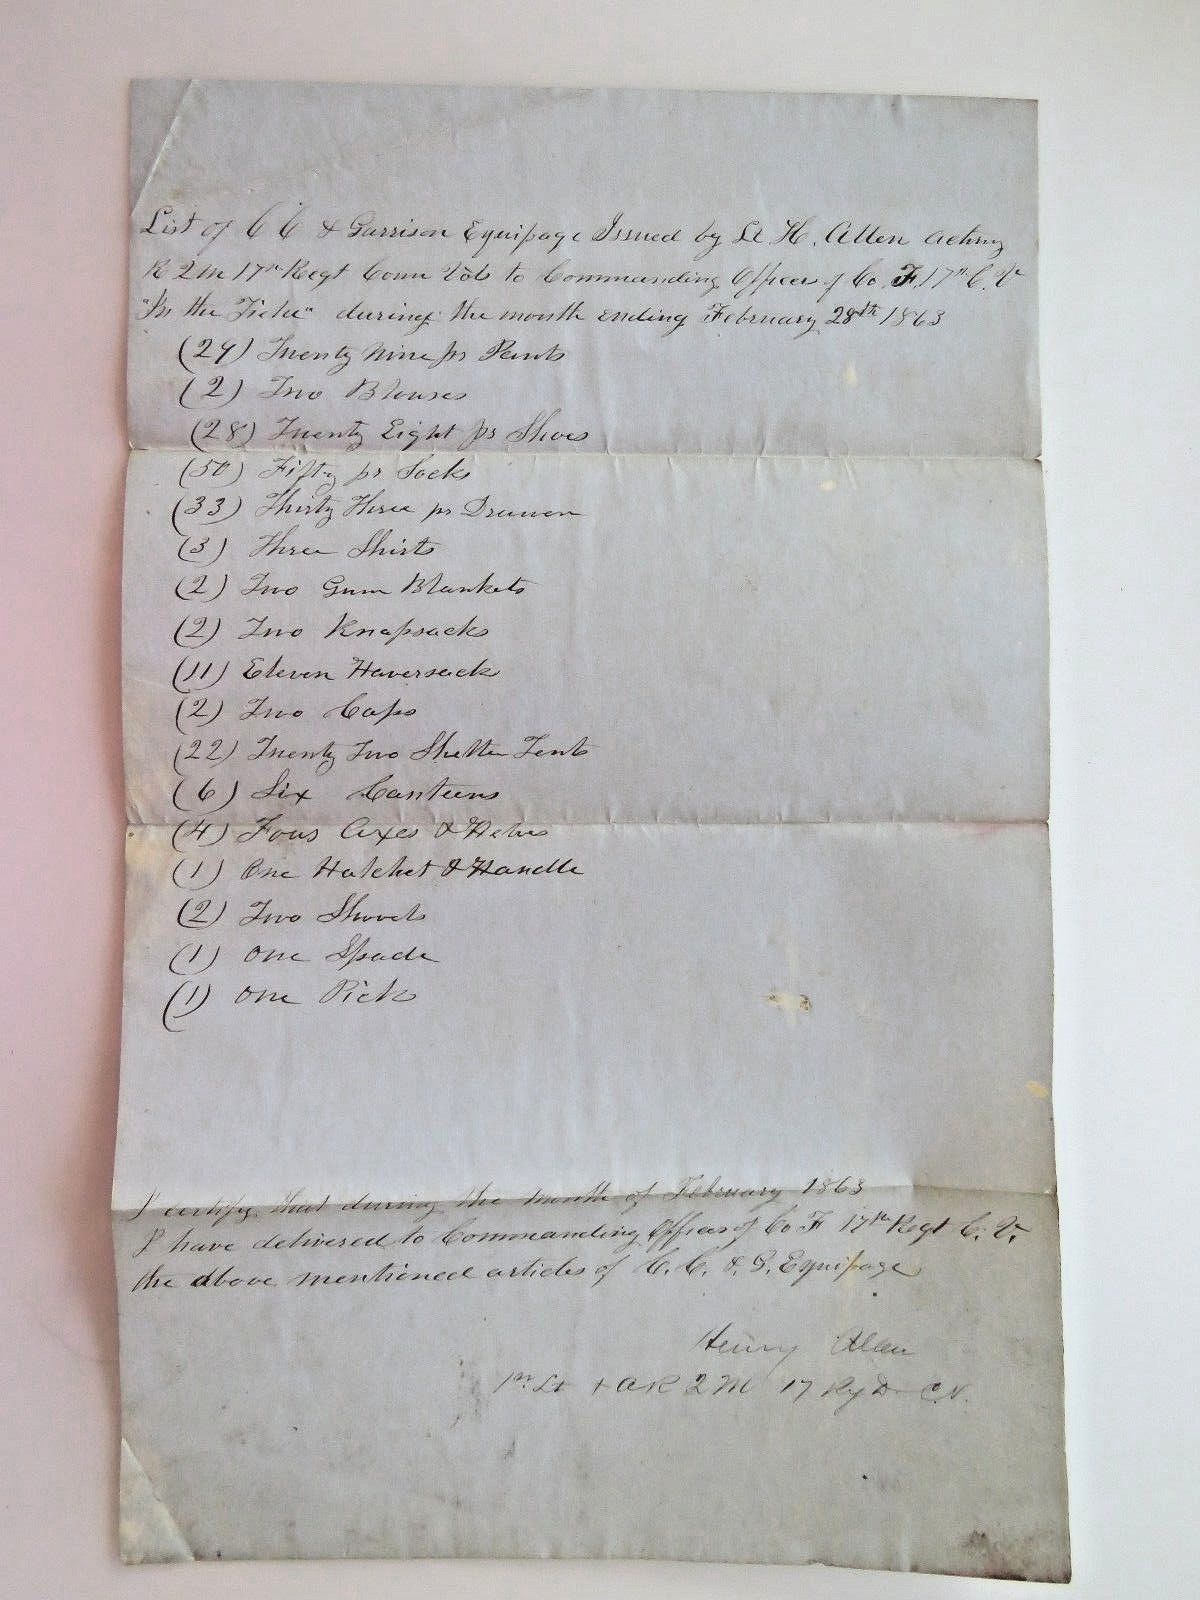 List of C C & Garrison Equipage Issued by Lt H. Allen acting
R 2 M 17th Regt Conn Vols to Commanding Officer of Co F. 17th C. V
"In the Field" during the month ending February 28th 1863
(29) Twenty Nine prs Pants
(2) Two Blouses
(28) Twenty Eight prs Shoes
(50) Fifty pr Socks
(33) Thirty Three pr Drawers
(3) Three Shirts
(2) Two Gum Blankets
(2) Two Knapsacks
(11) Eleven Haversack
(2) Two Caps
(22) Twenty Two Shelter Tents
(6) Six Canteens
(4) Four Axes & Helves
(1) One Hatchet & Handle
(2) Two Shovels
(1) One Spade
(1) One Pick
I certify that during the month of February 1863
I have delivered to Commanding Officer of Co F 17th Regt C. V.
the above mentioned articles of C. C. & G. Equipage
Henry Allen
1st Lt + A R 2 M 17 C.V.